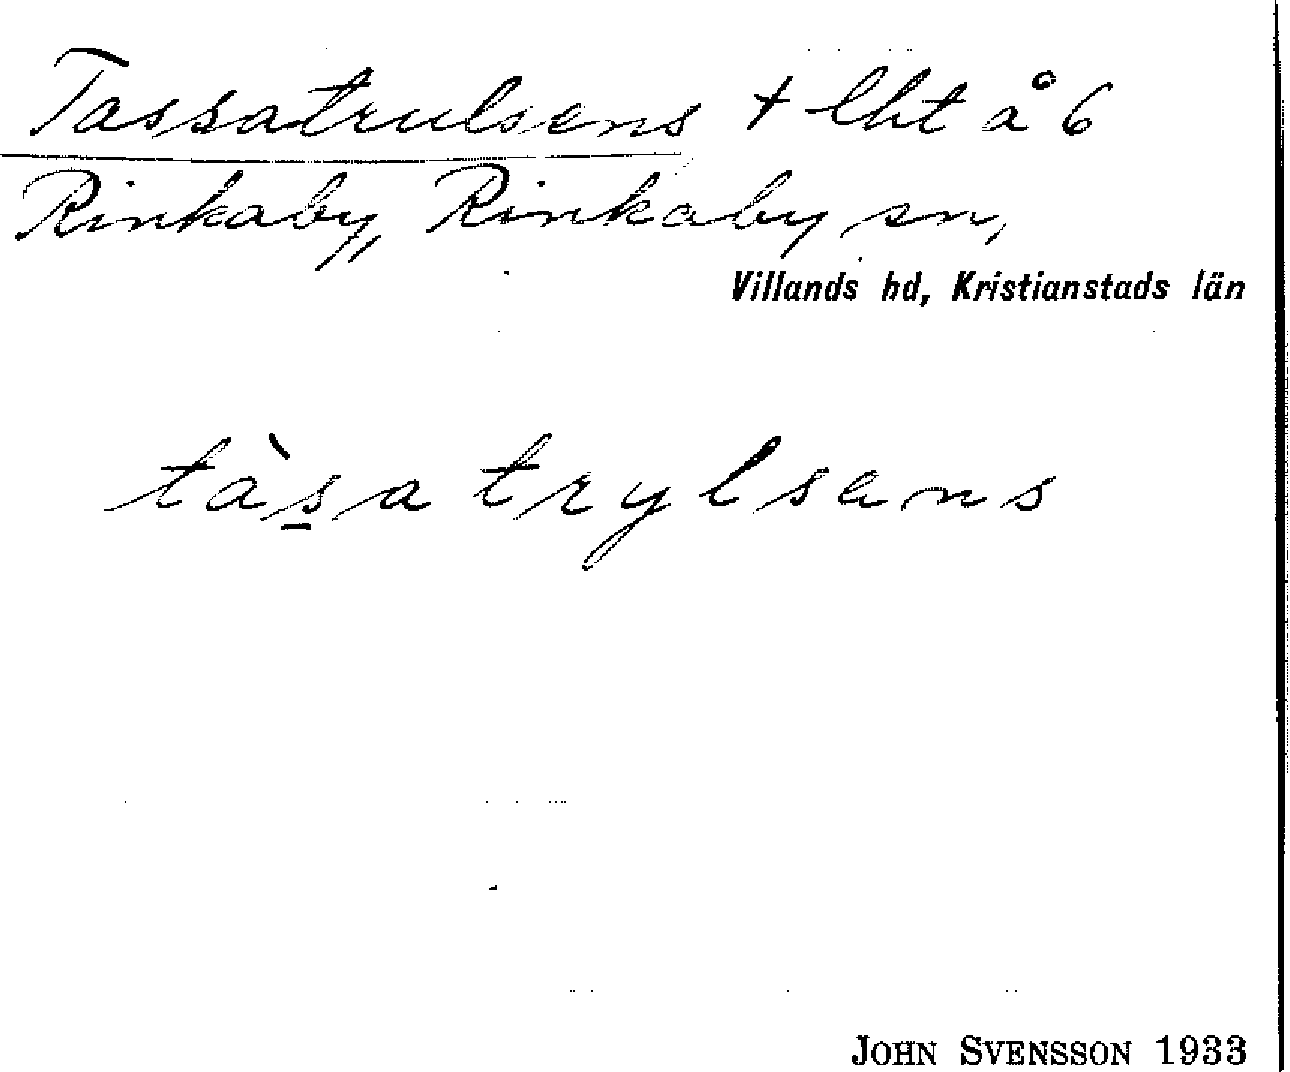 Tassatrulsens + lht å 6
Rinkaby, Rinkaby sn,
Villands hd, Kristianstads län
tàs̱a trylsens
JOHN SVENSSON 1933